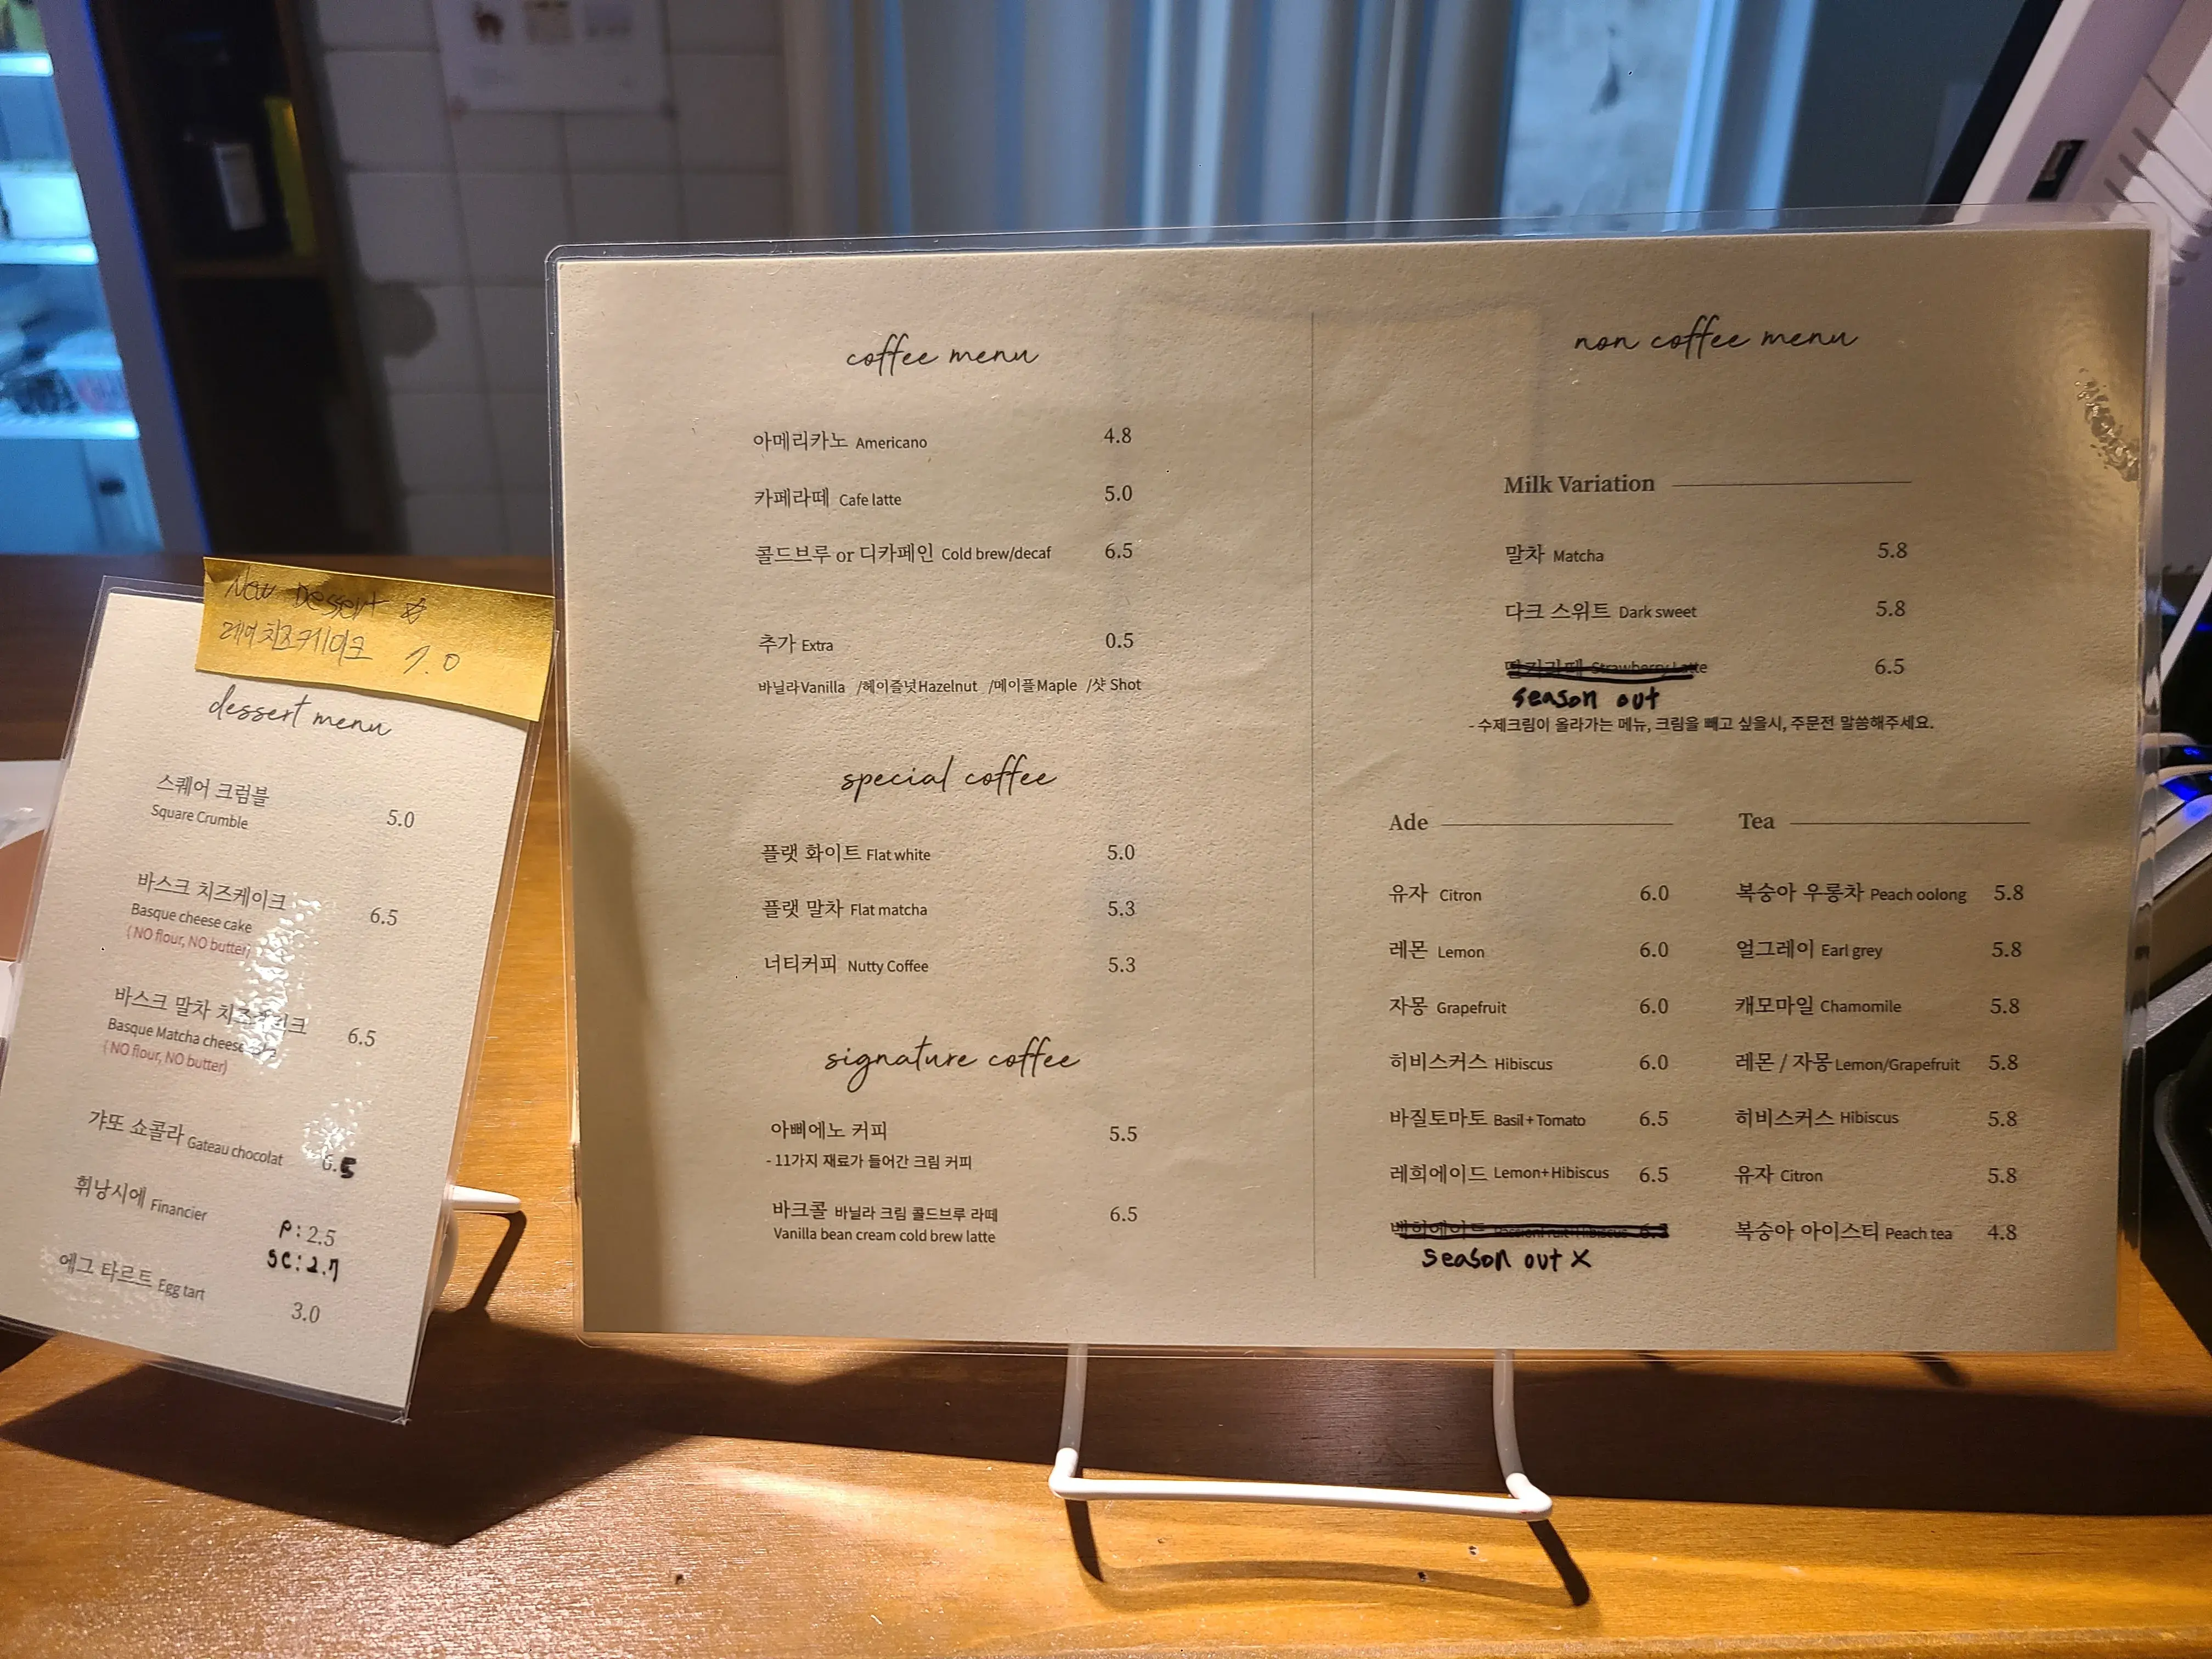 New Dessert ☆
레어치즈케이크 7.0
dessert menu
스퀘어 크럼블
Square Crumble 5.0
바스크 치즈케이크
Basque cheese cake 6.5
( NO flour, NO butter)
바스크 말차 치즈케이크
Basque Matcha cheese 6.5
( NO flour, NO butter)
갸또 쇼콜라 Gateau chocolat 6.5
휘낭시에 Financier P: 2.5
SC: 2.7
에그 타르트 Egg tart 3.0
coffee menu
아메리카노 Americano 4.8
카페라떼 Cafe latte 5.0
콜드브루 or 디카페인 Cold brew/decaf 6.5
추가 Extra 0.5
바닐라Vanilla /헤이즐넛Hazelnut /메이플Maple /샷 Shot
special coffee
플랫 화이트 Flat white 5.0
플랫 말차 Flat matcha 5.3
너티커피 Nutty Coffee 5.3
signature coffee
아삐에노 커피 5.5
- 11가지 재료가 들어간 크림 커피
바크콜 바닐라 크림 콜드브루 라떼 6.5
Vanilla bean cream cold brew latte
non coffee menu
Milk Variation
말차 Matcha 5.8
다크 스위트 Dark sweet 5.8
딸기라떼 Strawberry Latte 6.5
season out
- 수제크림이 올라가는 메뉴, 크림을 빼고 싶을시, 주문전 말씀해주세요.
Ade
유자 Citron 6.0
레몬 Lemon 6.0
자몽 Grapefruit 6.0
히비스커스 Hibiscus 6.0
바질토마토 Basil+Tomato 6.5
레희에이드 Lemon+Hibiscus 6.5
season out X
Tea
복숭아 우롱차 Peach oolong 5.8
얼그레이 Earl grey 5.8
캐모마일 Chamomile 5.8
레몬 / 자몽 Lemon/Grapefruit 5.8
히비스커스 Hibiscus 5.8
유자 Citron 5.8
복숭아 아이스티 Peach tea 4.8